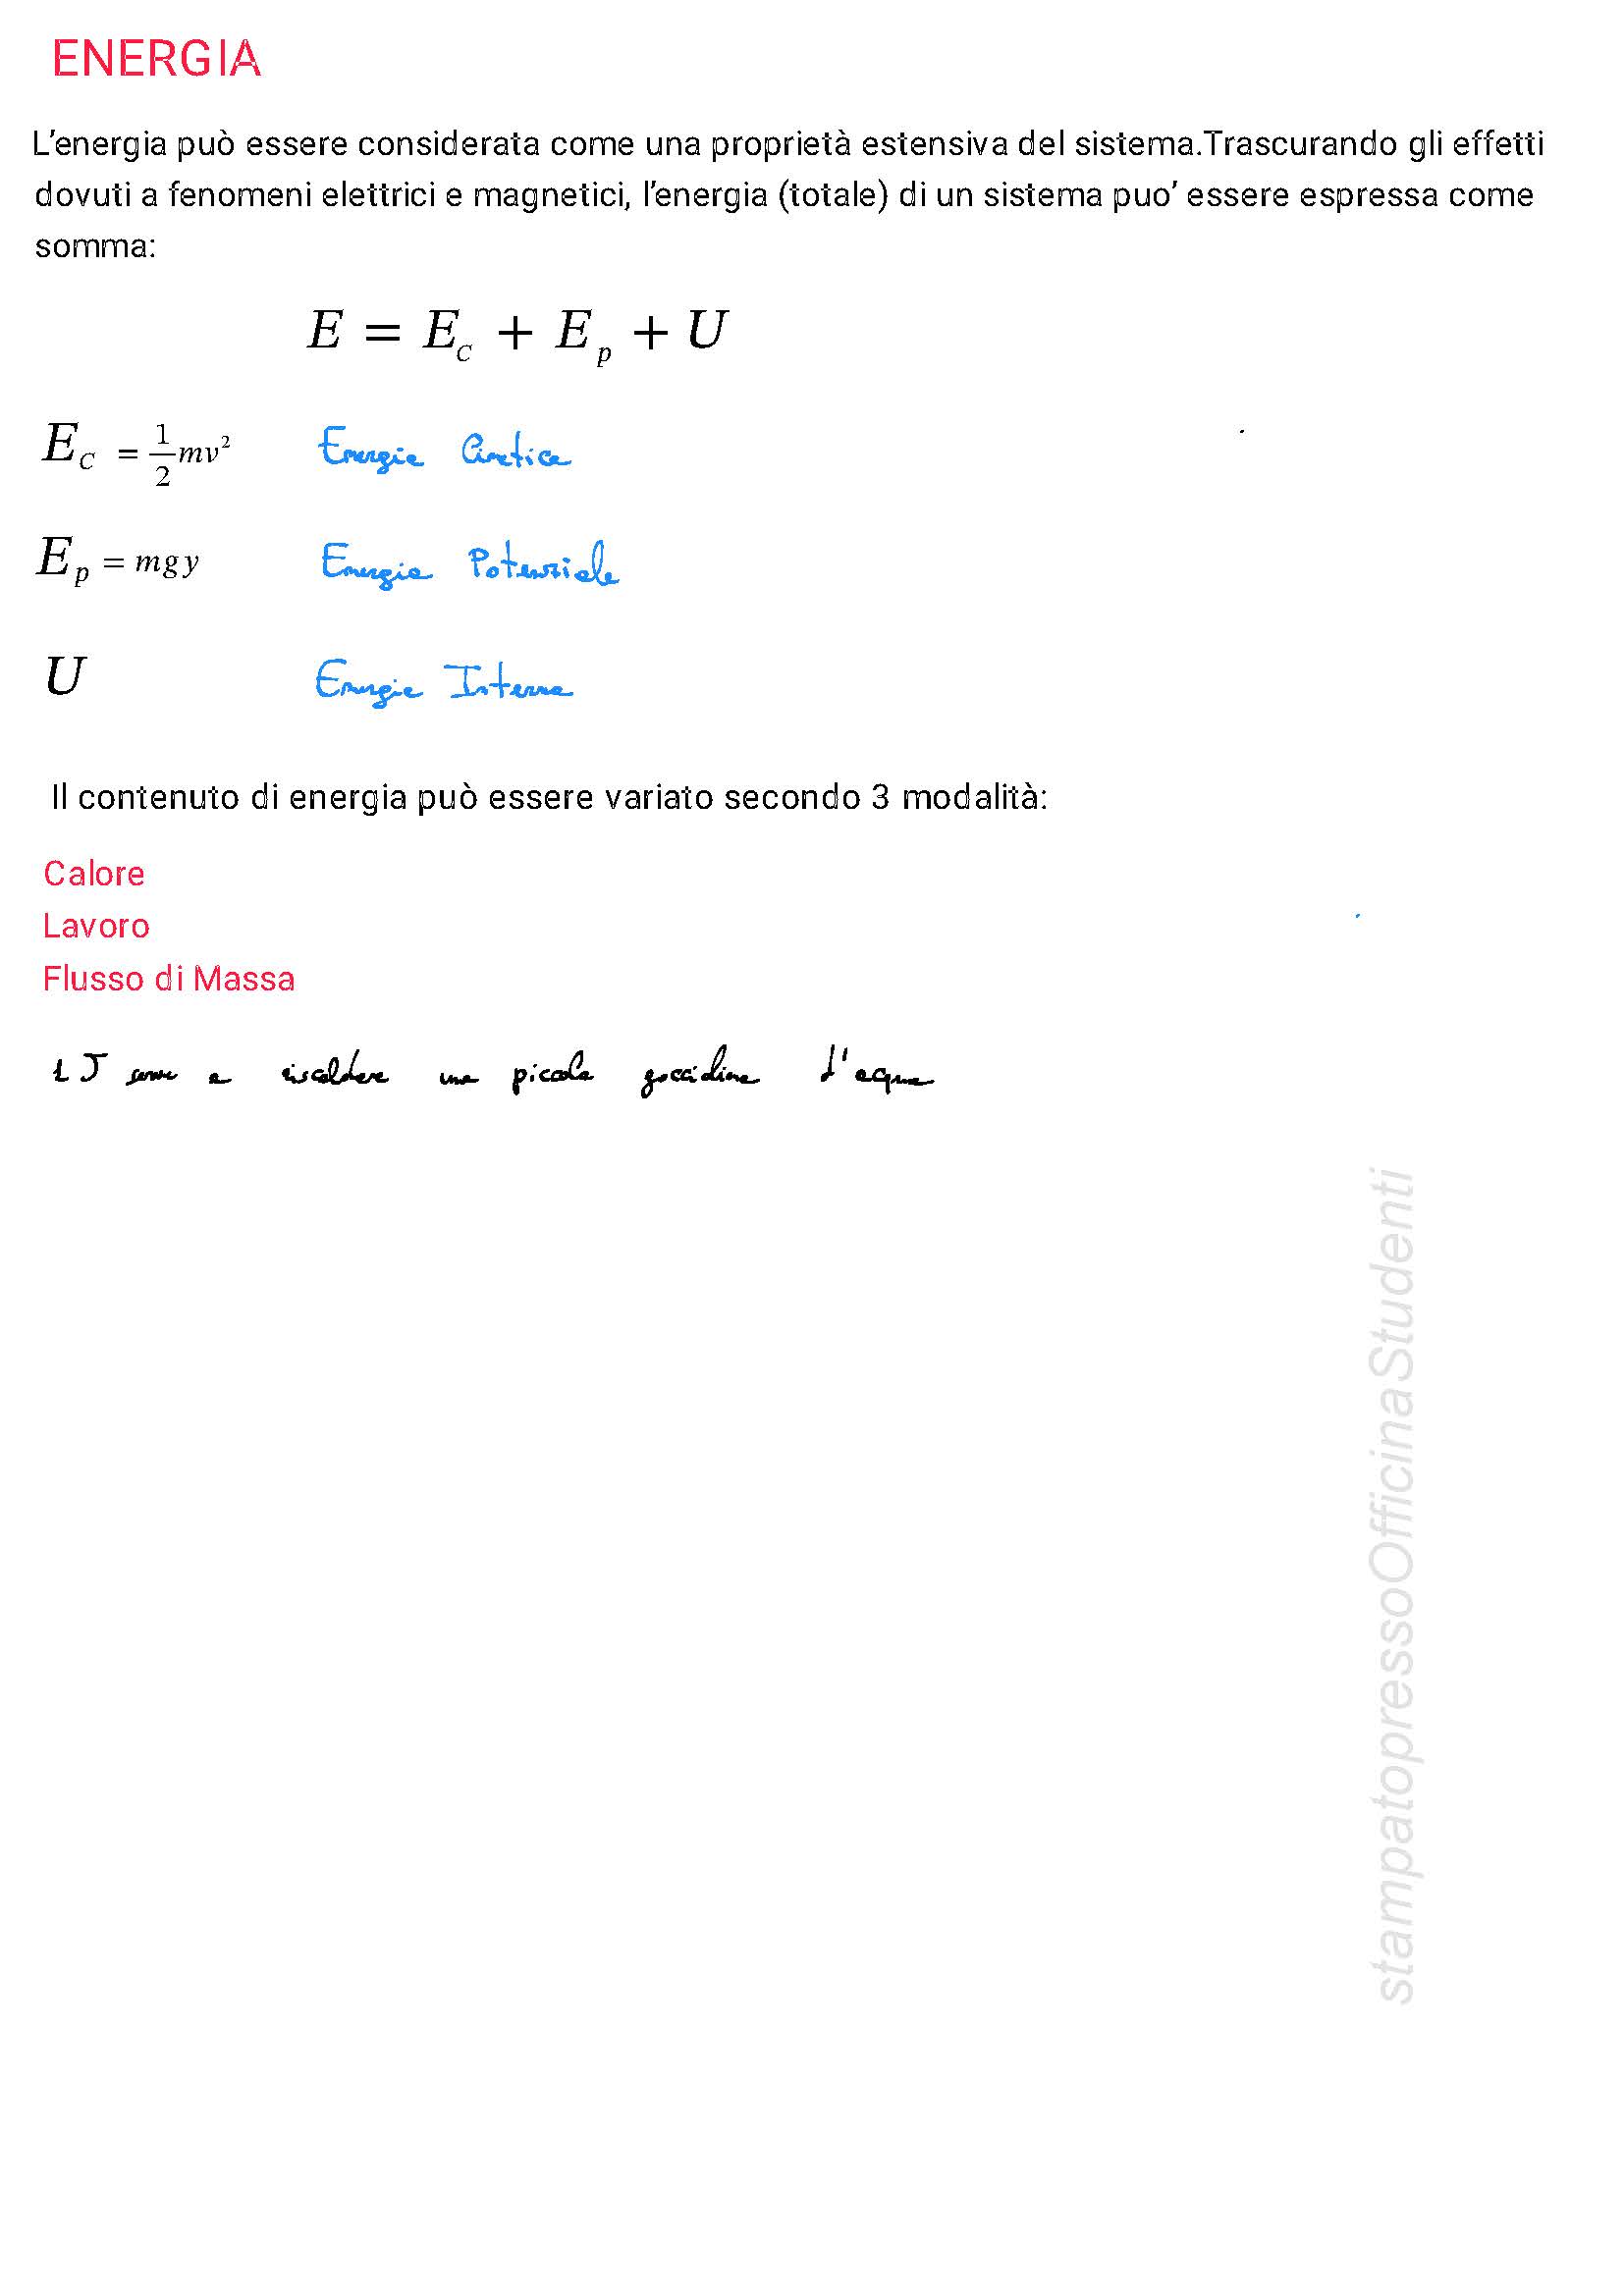 ENERGIA
L’energia può essere considerata come una proprietà estensiva del sistema.Trascurando gli effetti
dovuti a fenomeni elettrici e magnetici, l’energia (totale) di un sistema puo’ essere espressa come
somma:
E = E_C + E_p + U
E_C = 1/2 mv² Energia Cinetica
E_p = mgy Energia Potenziale
U Energia Interna
Il contenuto di energia può essere variato secondo 3 modalità:
Calore
Lavoro
Flusso di Massa
1 J serve a riscaldare una piccola gocciolina d'acqua
stampatopressoOfficinaStudenti